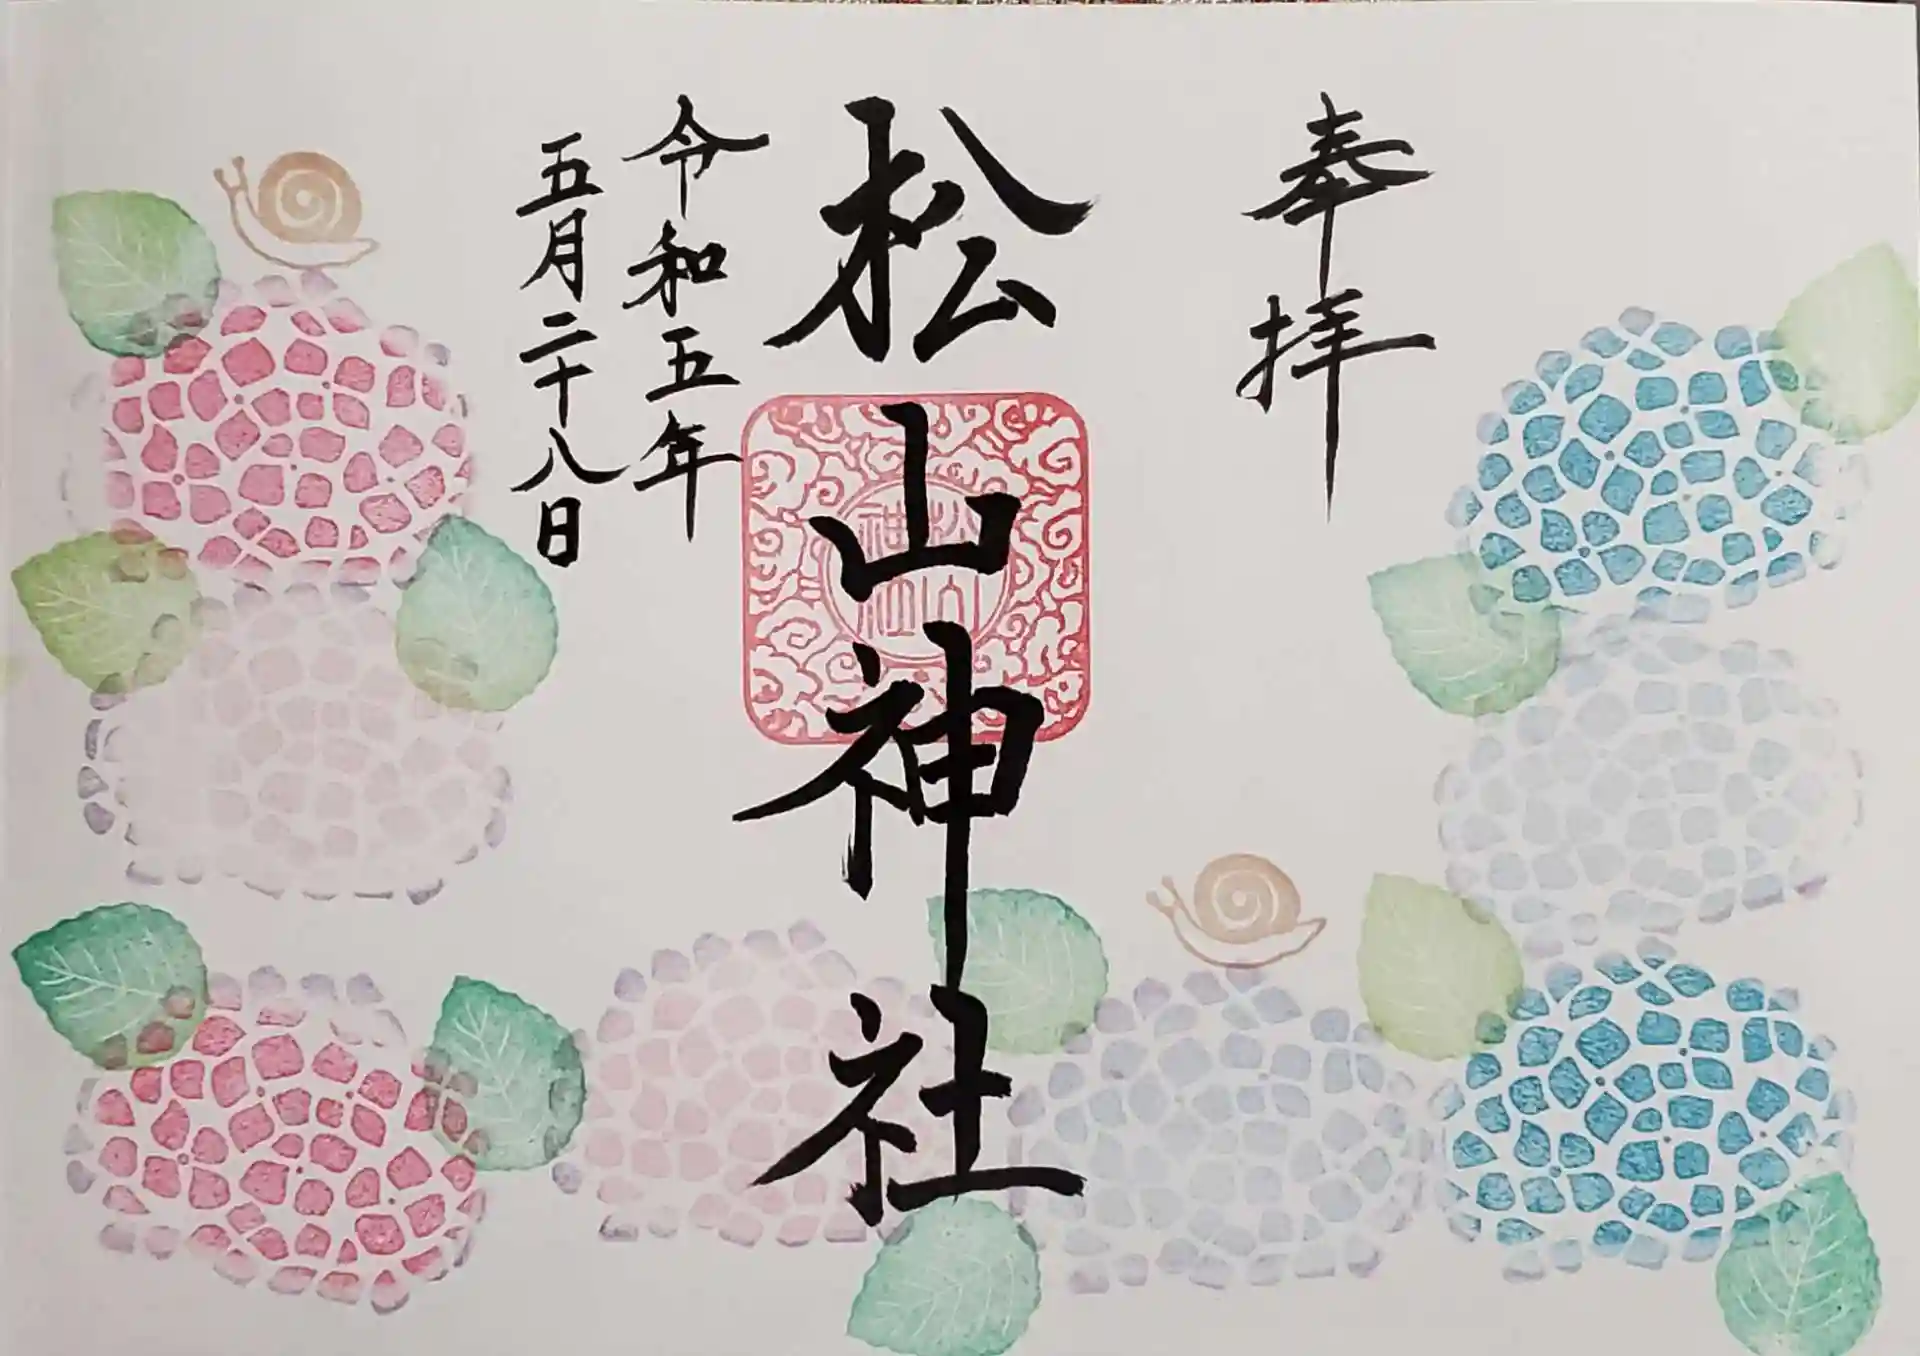 奉拝
松山神社
松山
神社
令和五年
五月二十八日